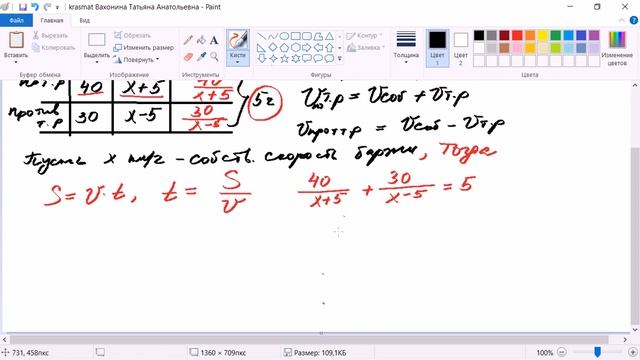 krasmat Вахонина Татьяна Анатольевна - Paint
Файл Главная Вид
Вставить
Вырезать
Копировать
Выделить
Обрезать
Изменить размер
Повернуть
Кисти
Контур
Заливка
Толщина
Цвет 1
Цвет 2
Изменение цветов
Буфер обмена Изображение Инструменты Фигуры Цвета
по т.р 40 x+5 40/(x+5)
против т.р 30 x-5 30/(x-5)
5 ч
V по т.р = V соб + V т.р
V пр от т.р = V соб - V т.р
Пусть x км/ч - собств. скорость баржи, Тогда
S = v·t, t = S/v 40/(x+5) + 30/(x-5) = 5
731, 458пкс 1360 × 709пкс Размер: 109,1КБ 100%